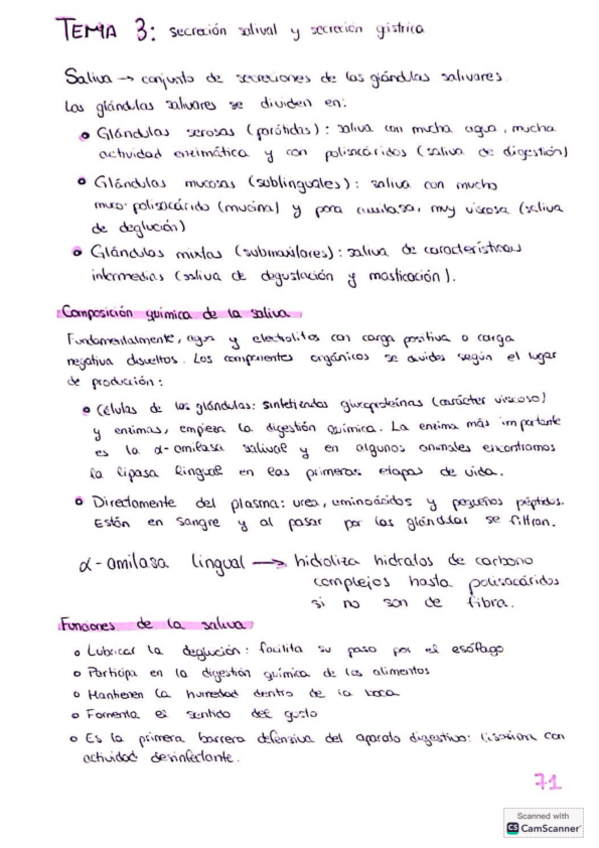 TEMA 3: secreción salival y secreción gástrica
Saliva → conjunto de secreciones de las glándulas salivares.
Las glándulas salivares se dividen en:
• Glándulas serosas (parótidas): saliva con mucha agua, mucha
actividad enzimática y con polisacáridos (saliva de digestión)
• Glándulas mucosas (sublinguales): saliva con mucho
muco-polisacárido (mucina) y poca amilasa, muy viscosa (saliva
de deglución)
• Glándulas mixtas (submaxilares): saliva de características
intermedias (saliva de degustación y masticación).
Composición química de la saliva
Fundamentalmente, agua y electrolitos con carga positiva o carga
negativa disueltos. Los componentes orgánicos se dividen según el lugar
de producción:
• Células de las glándulas: sintetizadas glucoproteínas (carácter viscoso)
y enzimas, empieza la digestión química. La enzima más importante
es la α-amilasa salival y en algunos animales encontramos
la lipasa lingual en las primeras etapas de vida.
• Directamente del plasma: urea, aminoácidos y pequeños péptidos.
Están en sangre y al pasar por las glándulas se filtran.
α-amilasa lingual → hidroliza hidratos de carbono
complejos hasta polisacáridos
si no son de fibra.
Funciones de la saliva
• Lubricar la deglución: facilita su paso por el esófago
• Participa en la digestión química de los alimentos
• Mantienen la humedad dentro de la boca
• Fomenta el sentido del gusto
• Es la primera barrera defensiva del aparato digestivo: lisozima con
actividad desinfectante.
71
Scanned with
CS CamScanner